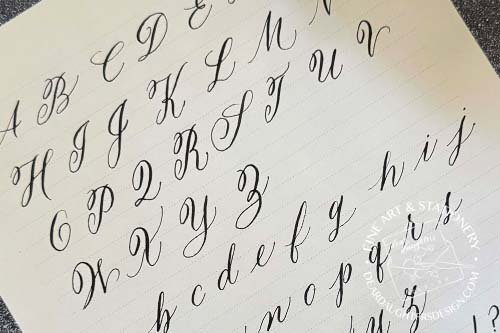 A B C D E
H I J K L M N
O P Q R S T U V
W X Y Z
b c d e f g h i j
n o p q r s
y z
FINE ART & STATIONERY
DEARDAUGHTERSDESIGN.COM